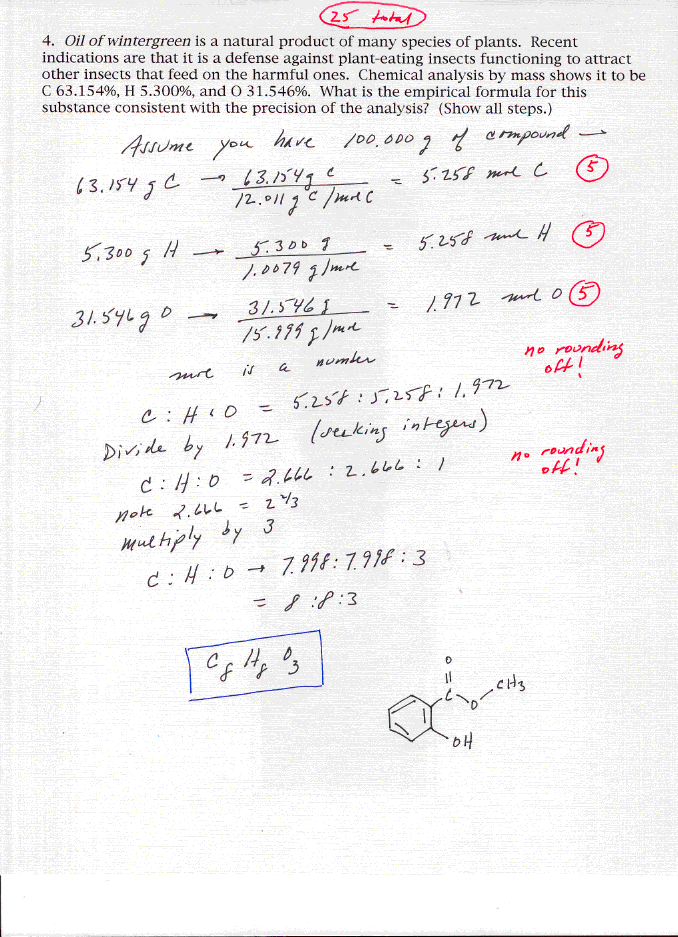 25 total
4. Oil of wintergreen is a natural product of many species of plants. Recent
indications are that it is a defense against plant-eating insects functioning to attract
other insects that feed on the harmful ones. Chemical analysis by mass shows it to be
C 63.154%, H 5.300%, and O 31.546%. What is the empirical formula for this
substance consistent with the precision of the analysis? (Show all steps.)
Assume you have 100.000 g of compound →
63.154 g C → 63.154 g C / 12.011 g C/mol C = 5.258 mol C 5
5.300 g H → 5.300 g / 1.0079 g/mol = 5.258 mol H 5
31.546 g O → 31.546 g / 15.999 g/mol = 1.972 mol O 5
mole is a number
no rounding
off!
C : H : O = 5.258 : 5.258 : 1.972
Divide by 1.972 (seeking integers)
C : H : O = 2.666 : 2.666 : 1
no rounding
off!
note 2.666 = 2 2/3
multiply by 3
C : H : O → 7.998 : 7.998 : 3
= 8 : 8 : 3
C8 H8 O3
O
C
CH3
O
OH